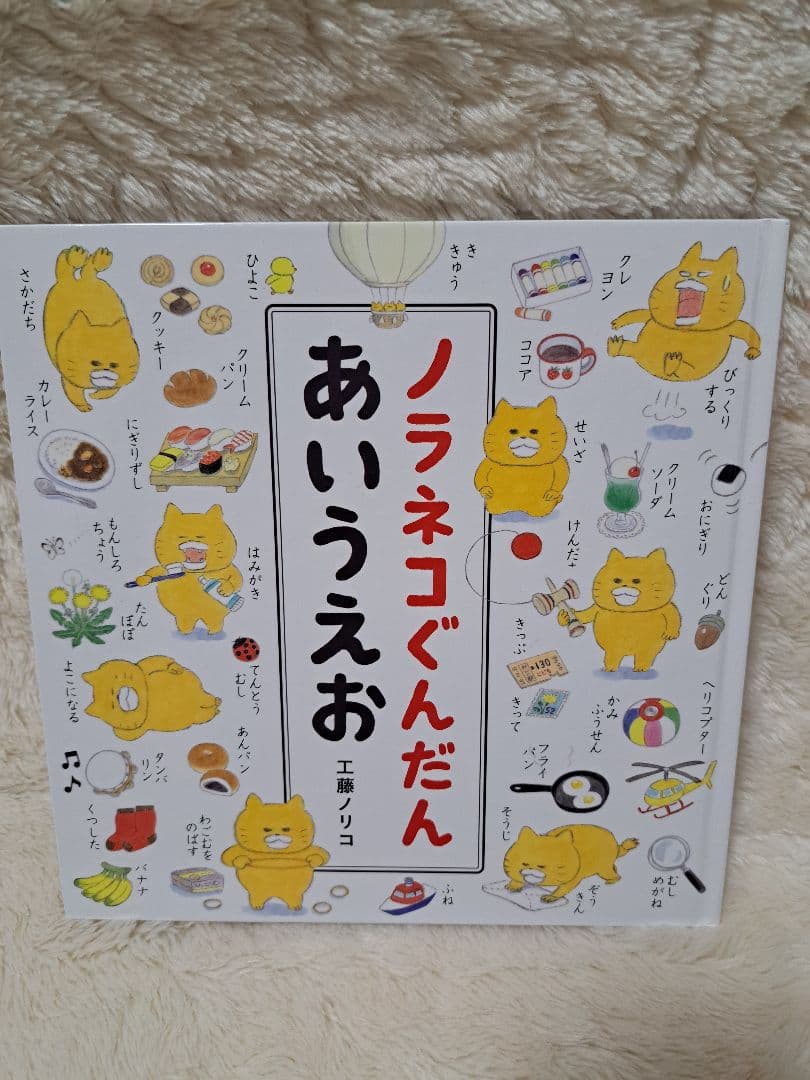 ノラネコぐんだん
あいうえお
工藤ノリコ
ききゅう
ひよこ
クッキー
さかだち
クリーム
パン
カレー
ライス
にぎりずし
もんしろ
ちょう
はみがき
たん
ぽぽ
てんとう
むし
よこになる
あんパン
タンバ
リン
くつした
わごむを
のばす
バナナ
ふね
クレ
ヨン
ココア
びっくり
する
せいざ
クリーム
ソーダ
おにぎり
けんだま
どん
ぐり
きっぷ
¥130
こども
きって
かみ
ふうせん
ヘリコプター
フライ
パン
そうじ
ぞう
きん
むし
めがね